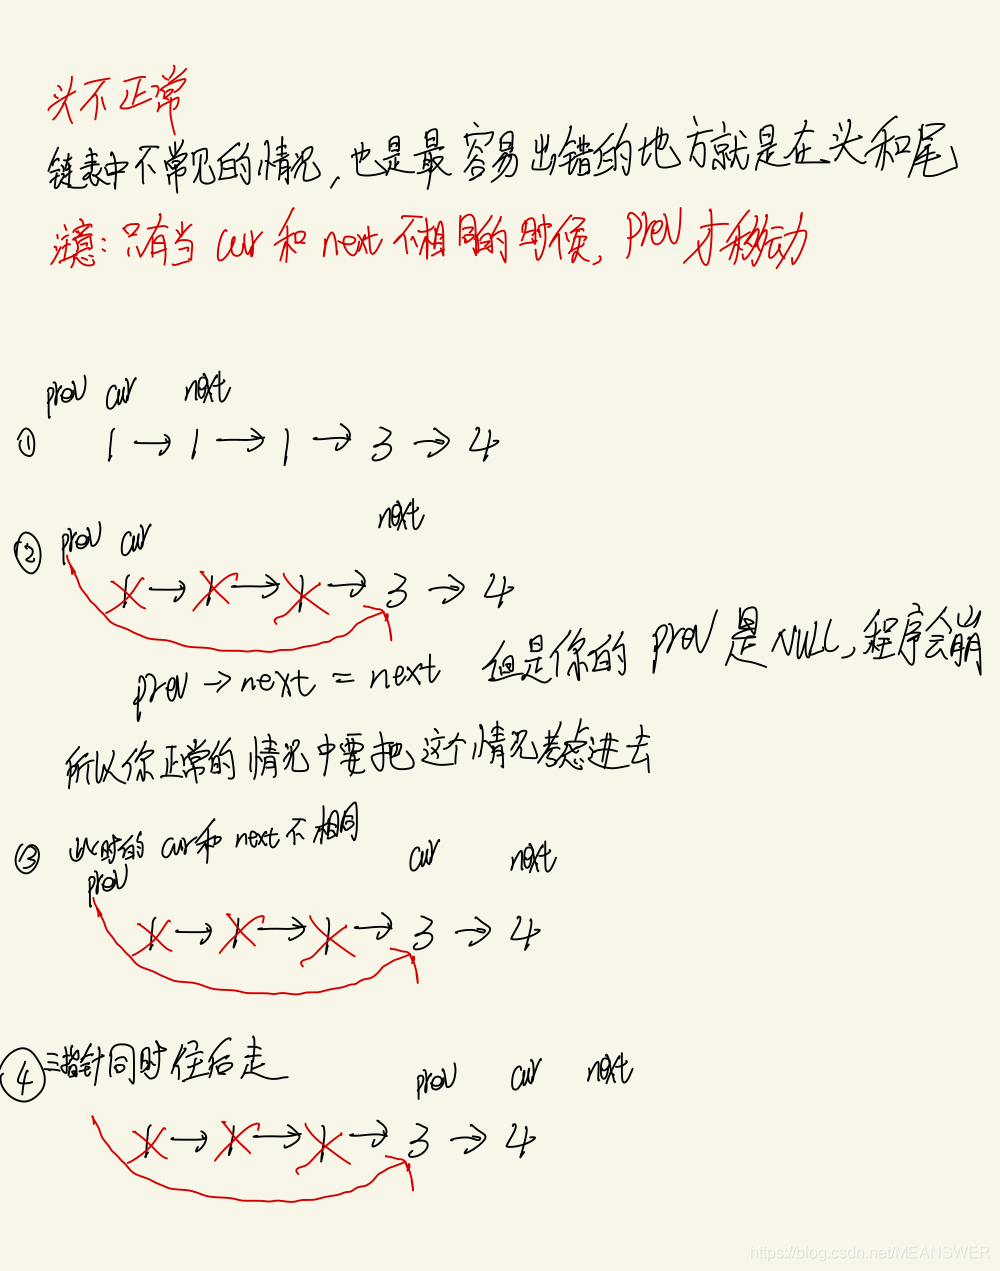 头不正常
链表中不常见的情况，也是最容易出错的地方就是在头和尾
注意：只有当 cur 和 next 不相同的时候，prev 才移动
prev cur next
① 1 → 1 → 1 → 3 → 4
next
② prev cur
1 → 1 → 1 → 3 → 4
prev → next = next 但是你的 prev 是 NULL，程序会崩
所以你正常的情况中要把这个情况考虑进去
③ 此时的 cur 和 next 不相同
prev cur next
1 → 1 → 1 → 3 → 4
④ 三指针同时往后走
prev cur next
1 → 1 → 1 → 3 → 4
https://blog.csdn.net/MEANSWER